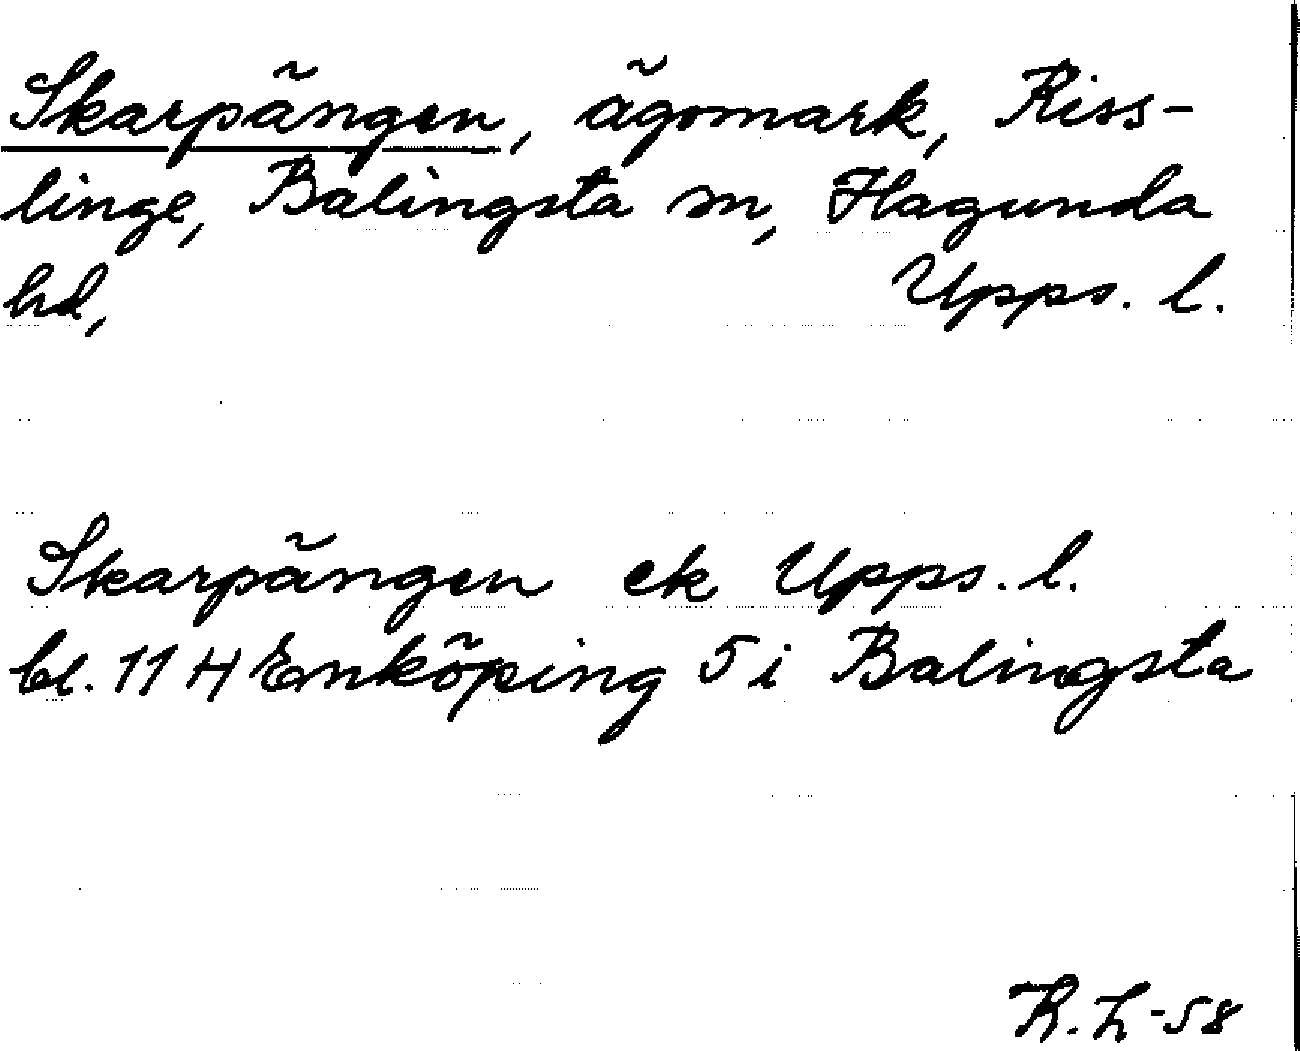 Skarpängen, ägomark, Riss-
linge, Balingsta sn, Hagunda
hd, Upps. l.
Skarpängen ek Upps. l.
bl. 11 H Enköping 5 i Balingsta
K. L-58